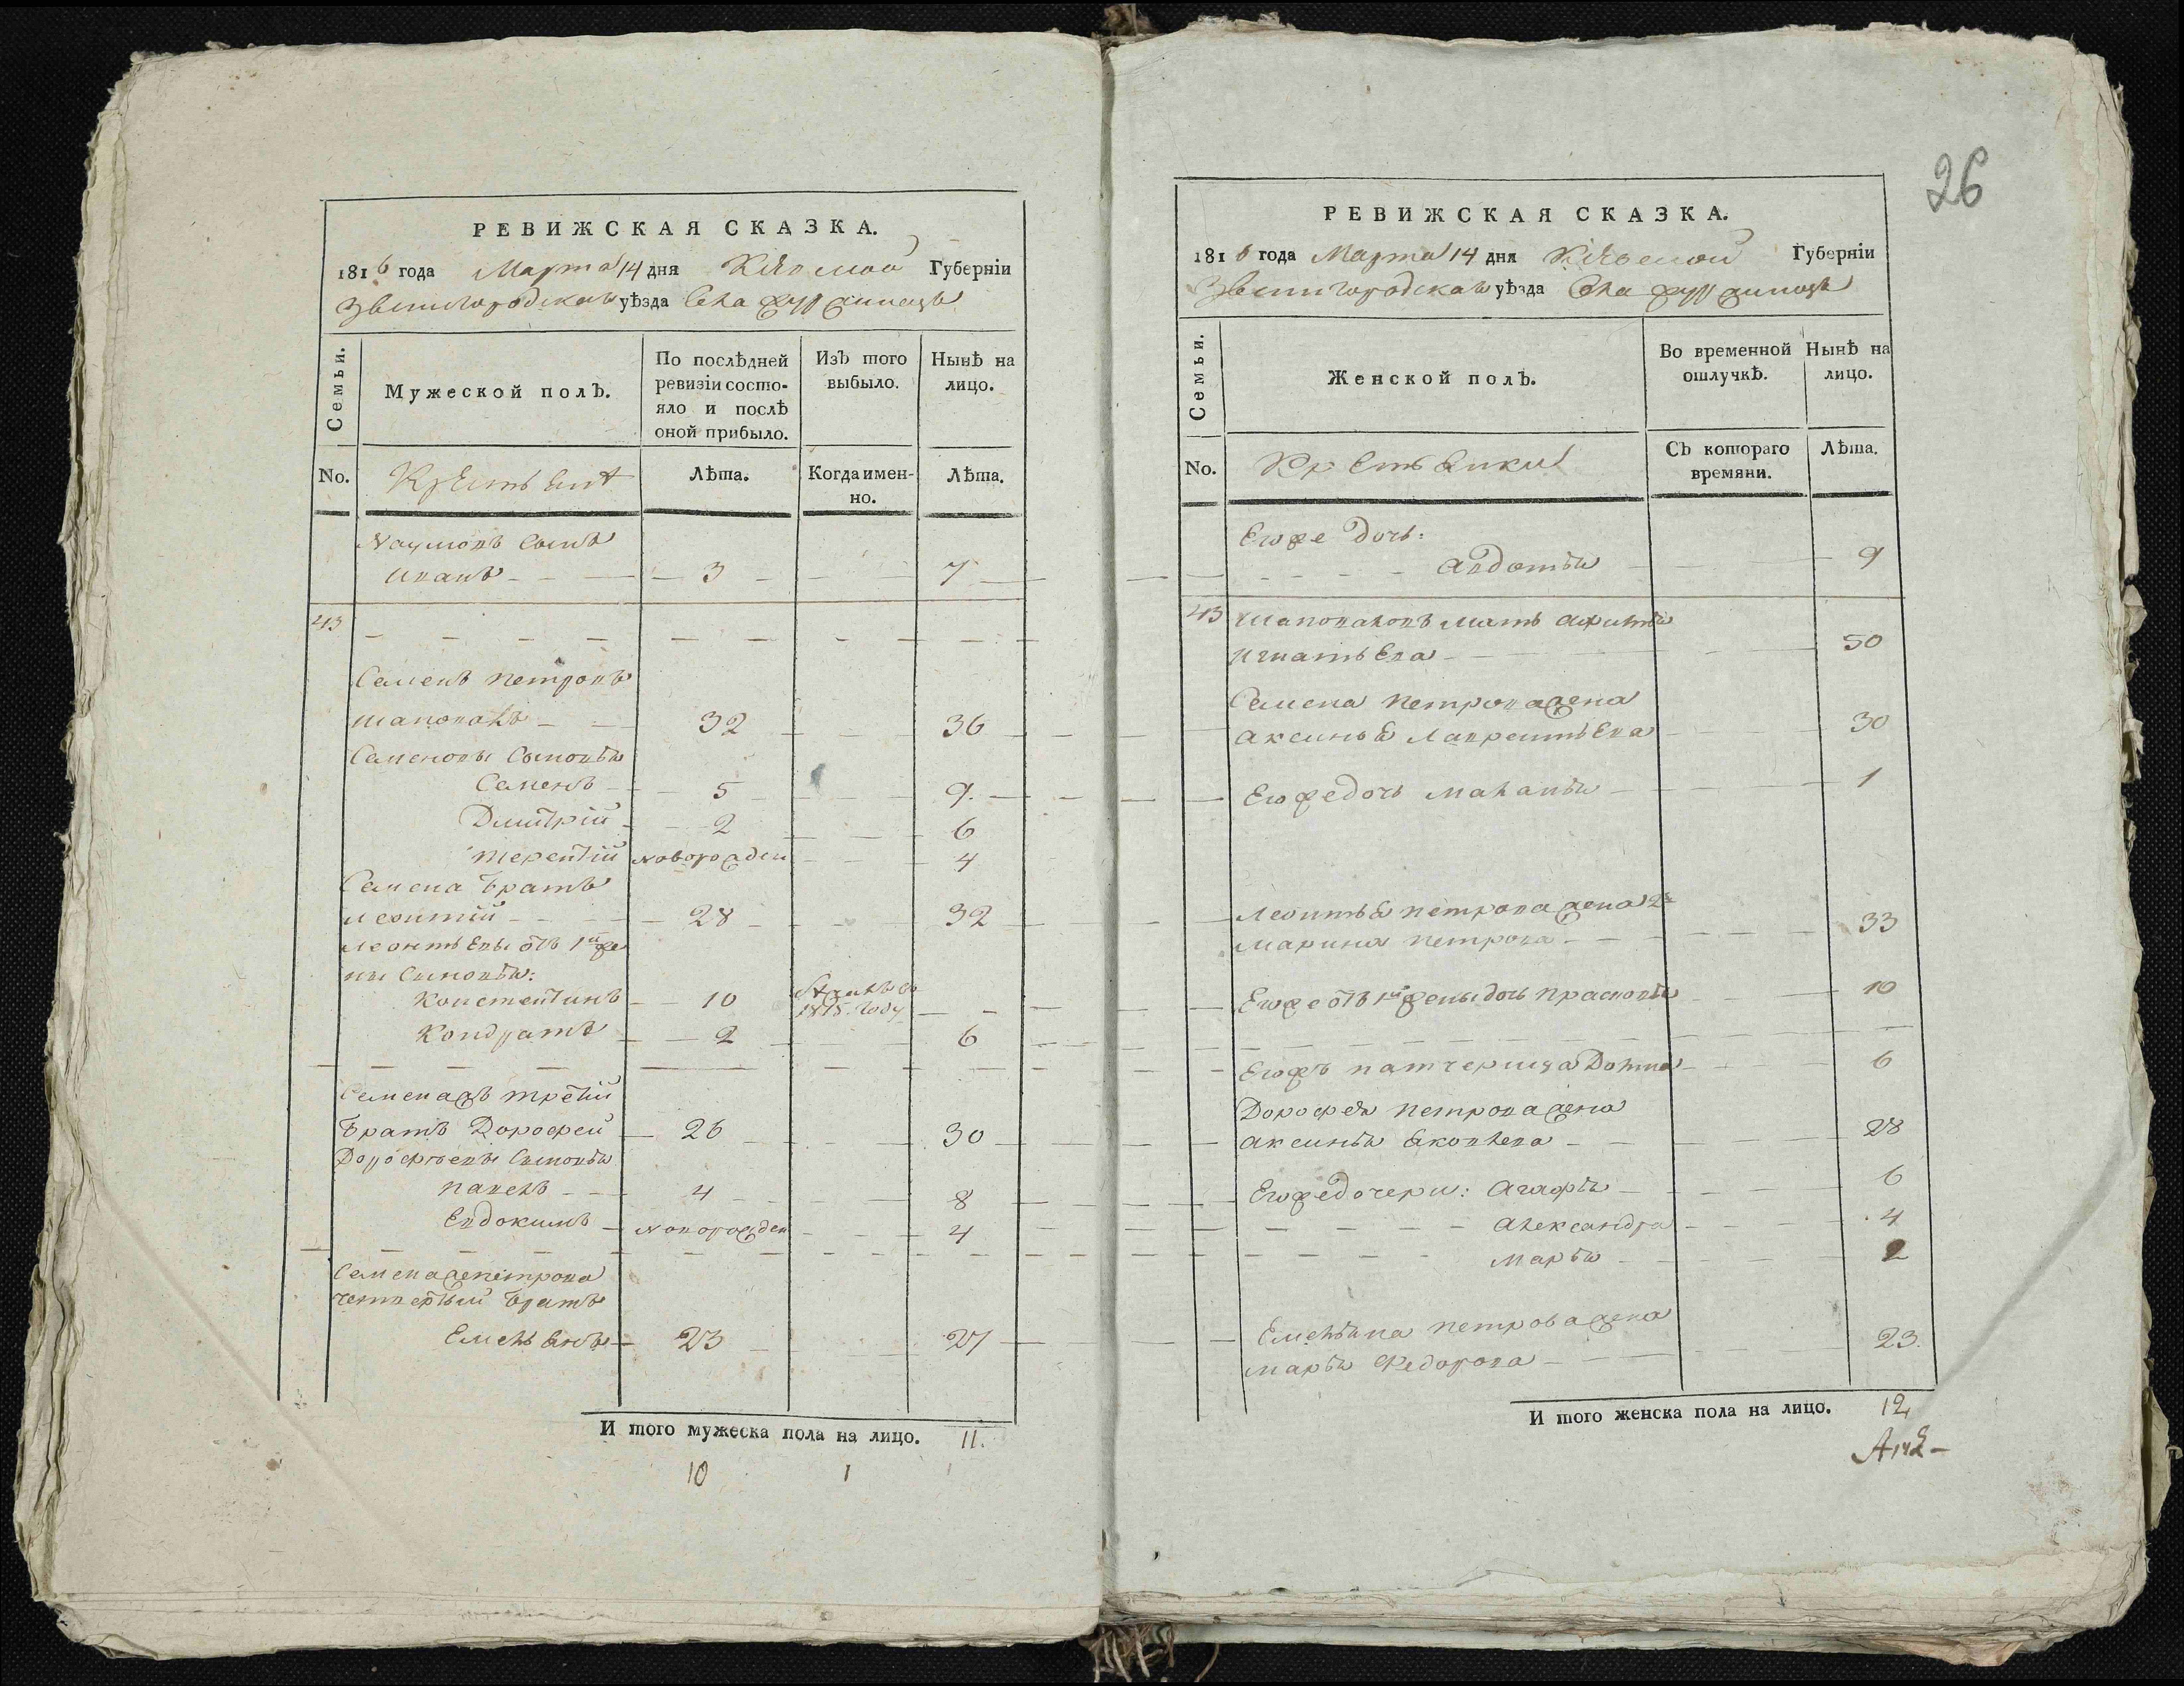 РЕВИЖСКАЯ СКАЗКА.
1816 года Марта 14 дня Кіевской Губерніи
Звенигородскаго уѣзда Села
Семьи.
Мужеской полъ.
По послѣдней ревизіи состояло и послѣ оной прибыло.
Изъ того выбыло.
Нынѣ на лицо.
No.
Крестьянѣ
Лѣта.
Когда именно.
Лѣта.
Наумовъ Сынъ
Иванъ 3 7
43
Семенъ Петровъ
Шаповалъ 32 36
Семеновы Сыновья
Семенъ 5 9.
Дмитрій 2 6
Терентій новорожден 4
Семена Братъ
Леонтій 28 32
Леонтьевы отъ 1й же
ны Сыновья:
Констентинъ 10 1815. году
Кондратъ 2 6
Семена жъ третій
Братъ Дорофей 26 30
Дорофѣевы Сыновья
Павелъ 4 8
Евдокимъ новорожден 4
Семена же Петрова
четвертый Братъ
Емельянъ 23 27
И того мужеска пола на лицо. 11.
10 1
26
РЕВИЖСКАЯ СКАЗКА.
1816 года Марта 14 дня Кіевской Губерніи
Звенигородскаго уѣзда Села
Семьи.
Женской полъ.
Во временной отлучкѣ.
Нынѣ на лицо.
No.
Крестьянки
Съ котораго времяни.
Лѣта.
Егоже дочь:
Авдотья 9
43 Шаповаловъ мать
Игнатьева 50
Семена Петрова жена
Аксинья Лаврентьева 30
Егоже дочь Маланья 1
Леонтья Петрова жена 2я
Марина Петрова 33
Егоже отъ 1й жены дочь Прасковья 10
Егожъ патчерица Домна 6
Дорофея Петрова жена
Аксинья Яковлева 28
Егоже дочери: Агафья 6
Александра 4
Марья 2
Емельяна Петрова жена
Марья Федорова 23.
И того женска пола на лицо. 12